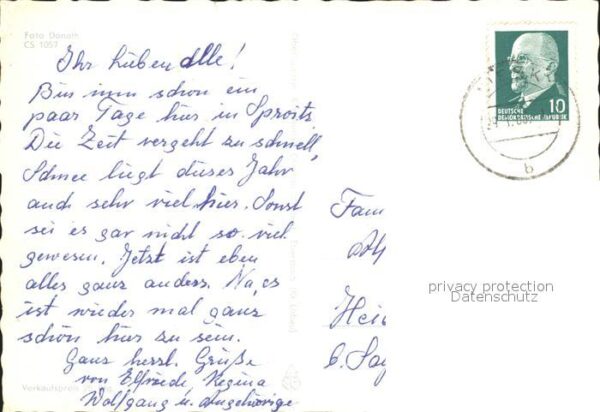 Foto Donath
CS 1057
Ihr lieben alle!
Bin nun schon ein
paar Tage hier in Sproitz
Die Zeit vergeht zu schnell,
Schnee liegt dieses Jahr
auch sehr viel hier. Sonst
sei es gar nicht so viel
gewesen. Jetzt ist eben
alles ganz anders. Na, es
ist wieder mal ganz
schön hier zu sein.
Ganz herzl. Grüße
von Elfriede, Regina
Wolfgang u. Angehörige
Verkaufspreis
10
DEUTSCHE
DEMOKRATISCHE REPUBLIK
b
Fam
Hei
b.
privacy protection
Datenschutz